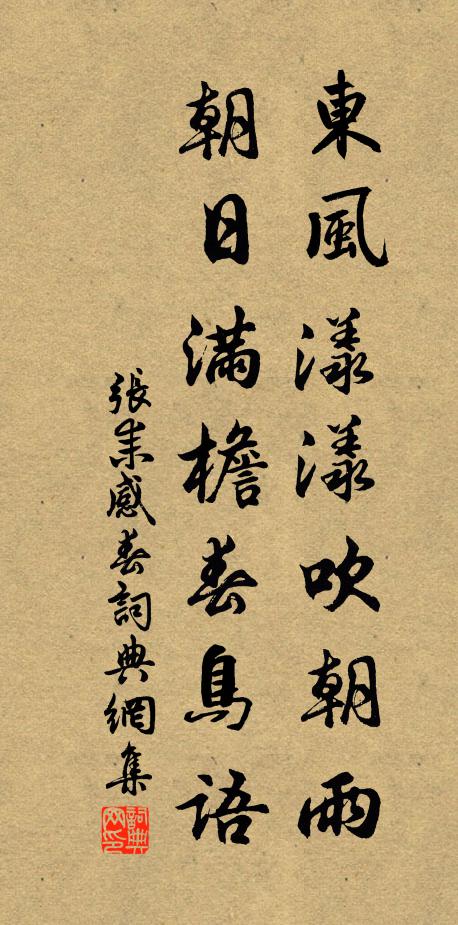 東風漾漾吹朝雨
朝日滿檐春鳥語
張耒感春詞典網集
詞典网印